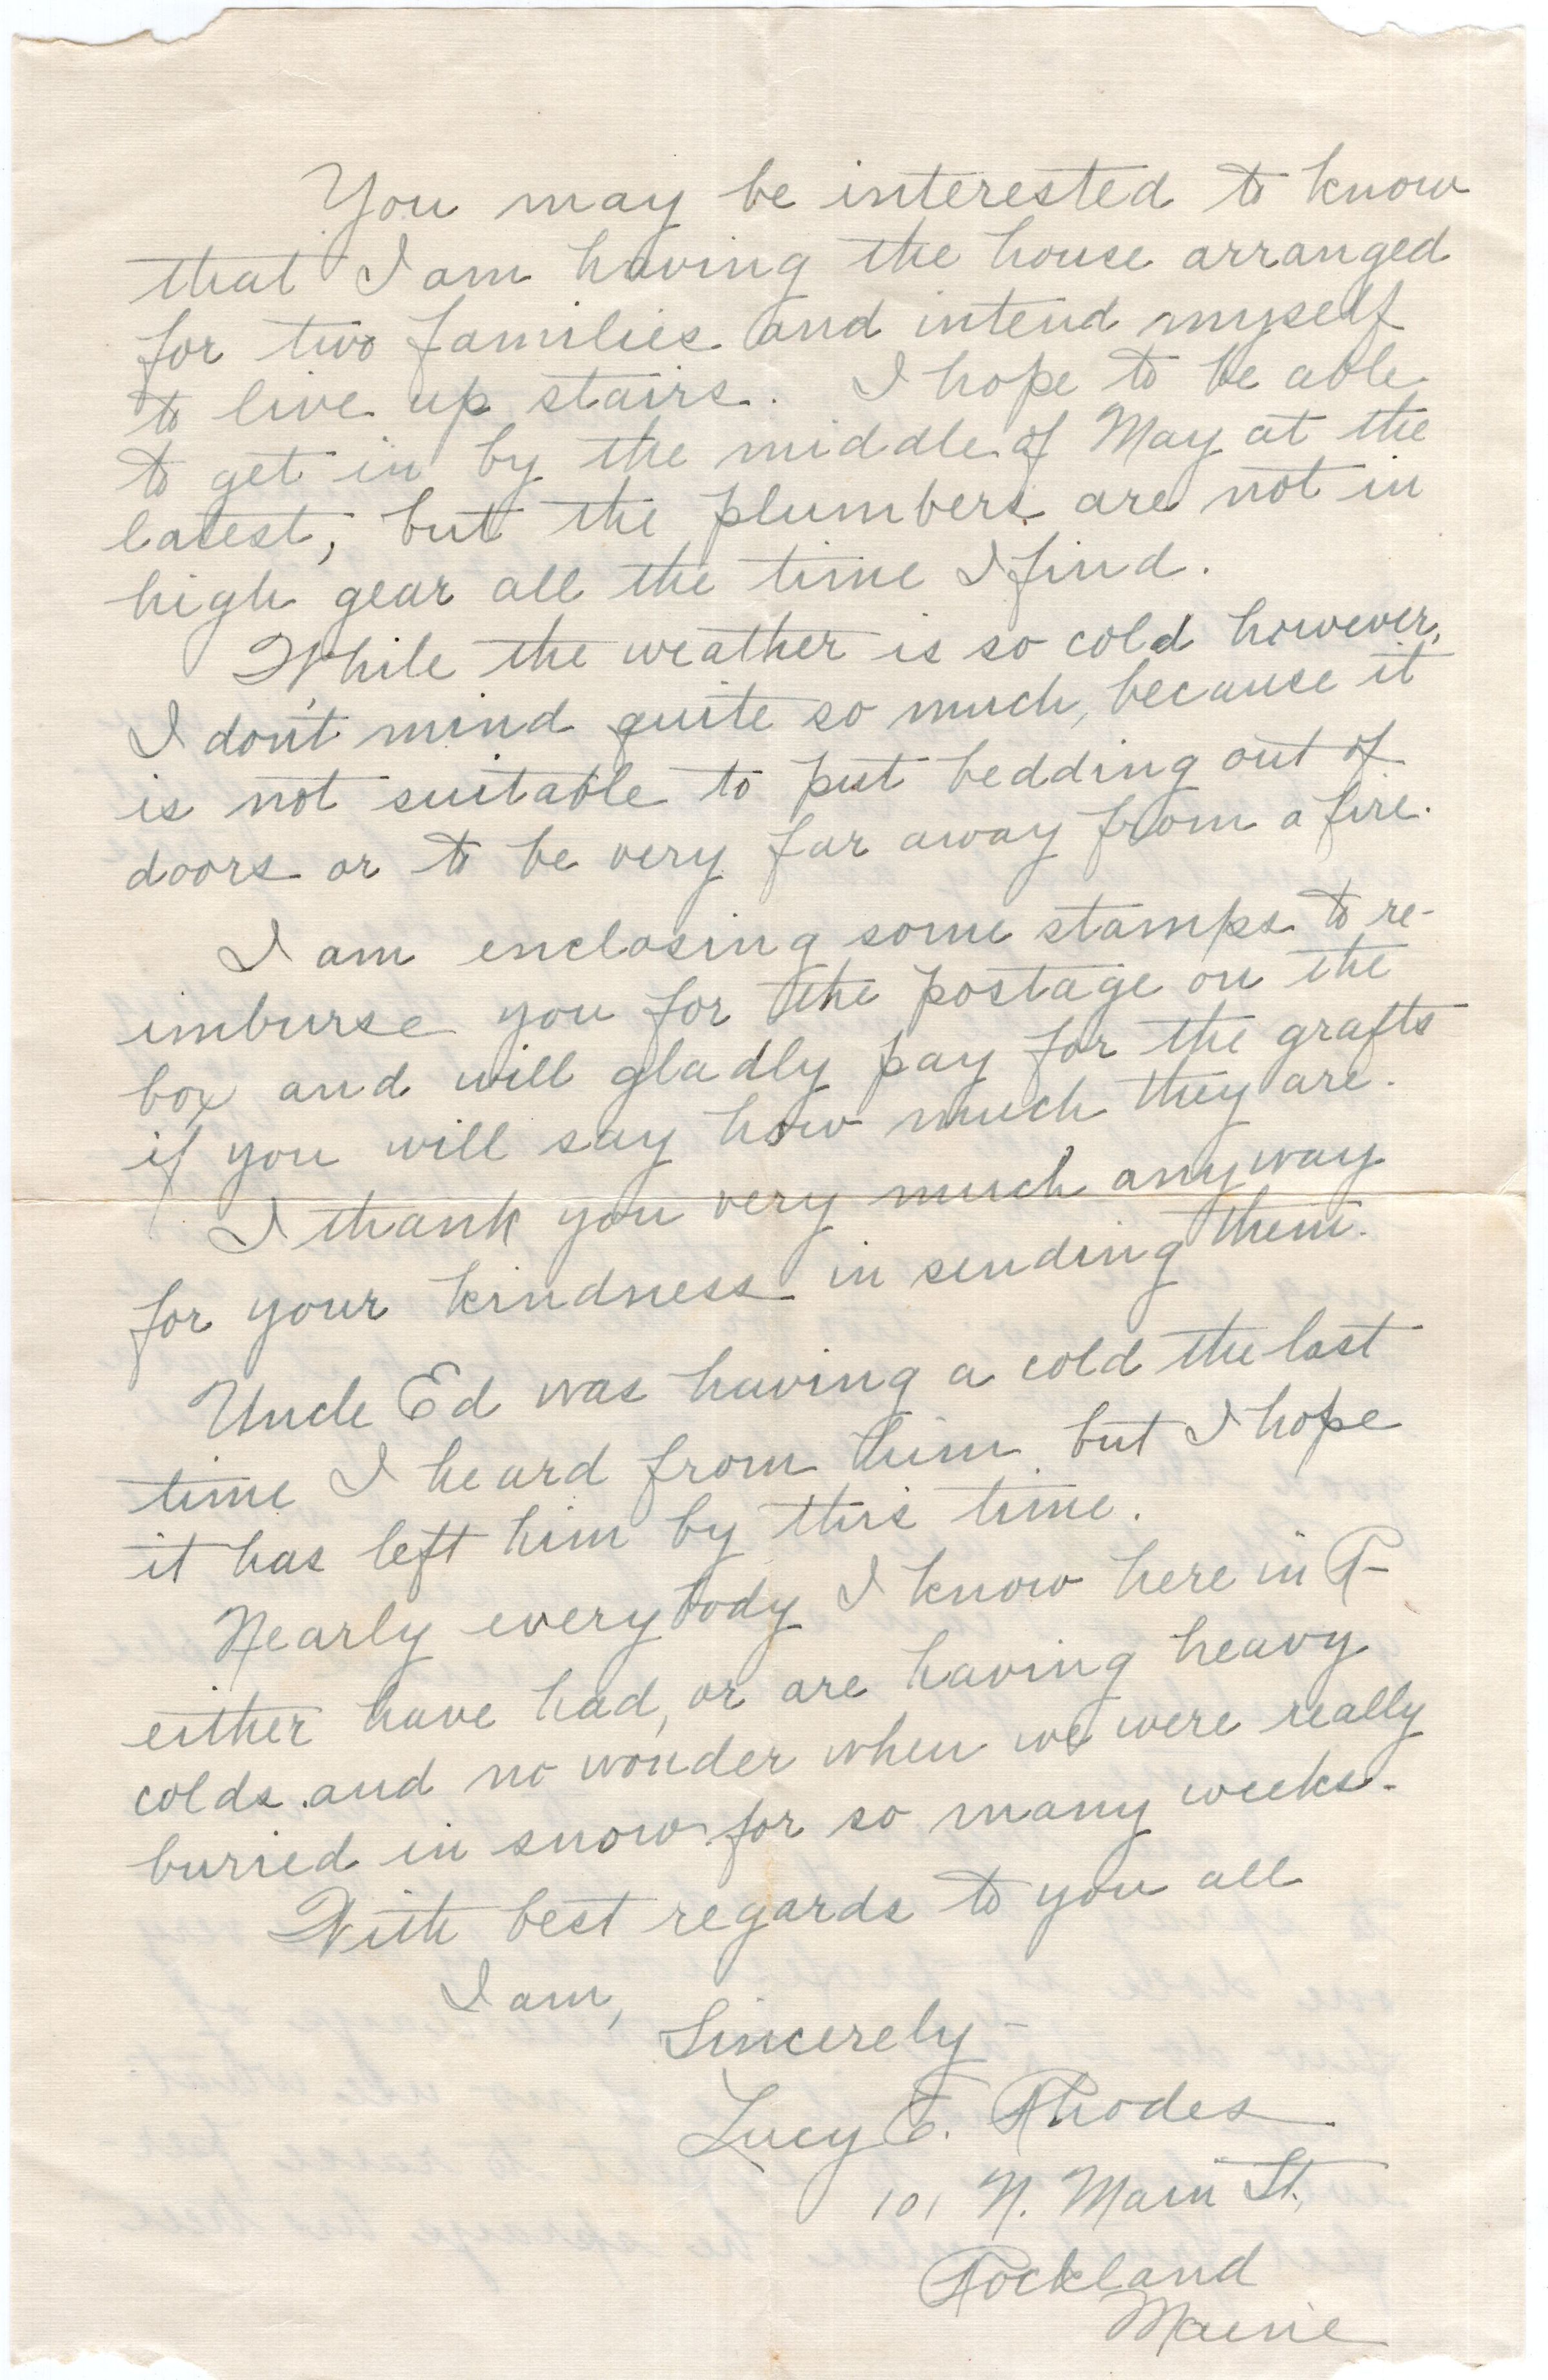 You may be interested to know
that I am having the house arranged
for two families and intend myself
to live up stairs. I hope to be able
to get in by the middle of May at the
latest, but the plumbers are not in
high gear all the time I find.
While the weather is so cold however,
I don't mind quite so much, because it
is not suitable to put bedding out of
doors or to be very far away from a fire.
I am enclosing some stamps to re-
imburse you for the postage on the
box and will gladly pay for the grafts
if you will say how much they are.
I thank you very much anyway
for your kindness in sending them.
Uncle Ed was having a cold the last
time I heard from him but I hope
it has left him by this time.
Nearly everybody I know here in R-
either have had, or are having heavy
colds and no wonder when we were really
buried in snow for so many weeks.
With best regards to you all
I am,
Sincerely -
Lucy E. Rhodes
101 N. Main St.
Rockland
Maine